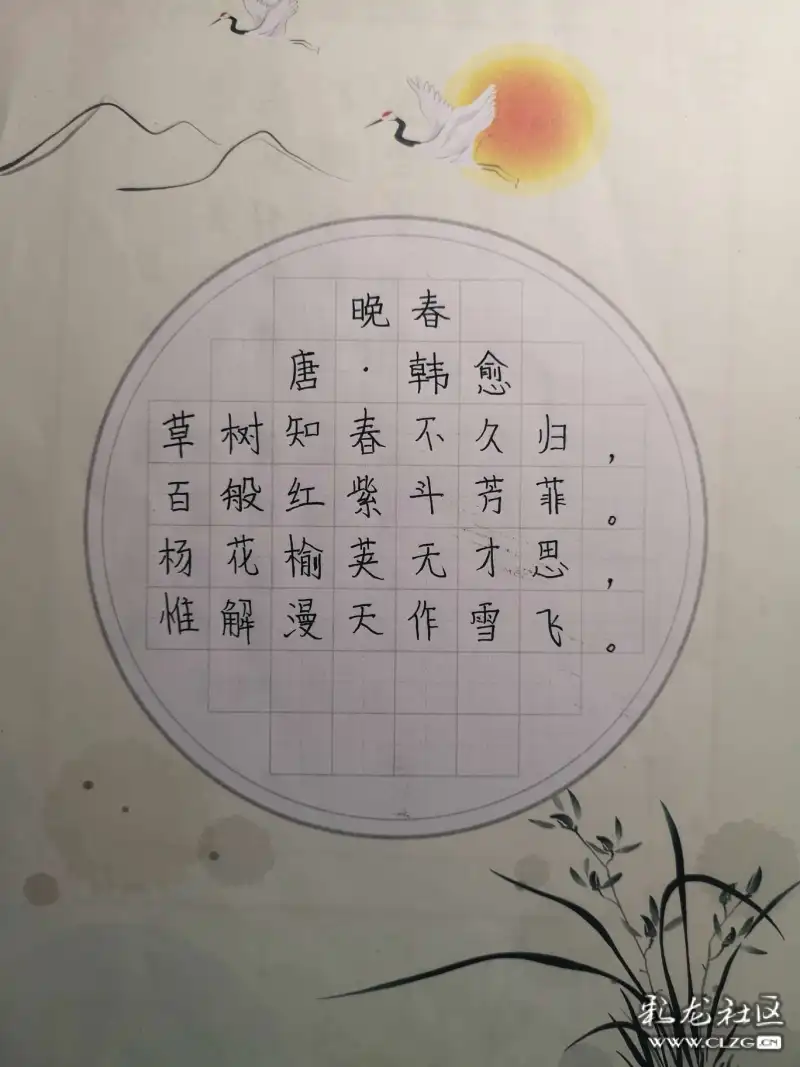 晚春
唐·韩愈
草树知春不久归，
百般红紫斗芳菲。
杨花榆荚无才思，
惟解漫天作雪飞。
彩龙社区
WWW.CLZG.CN